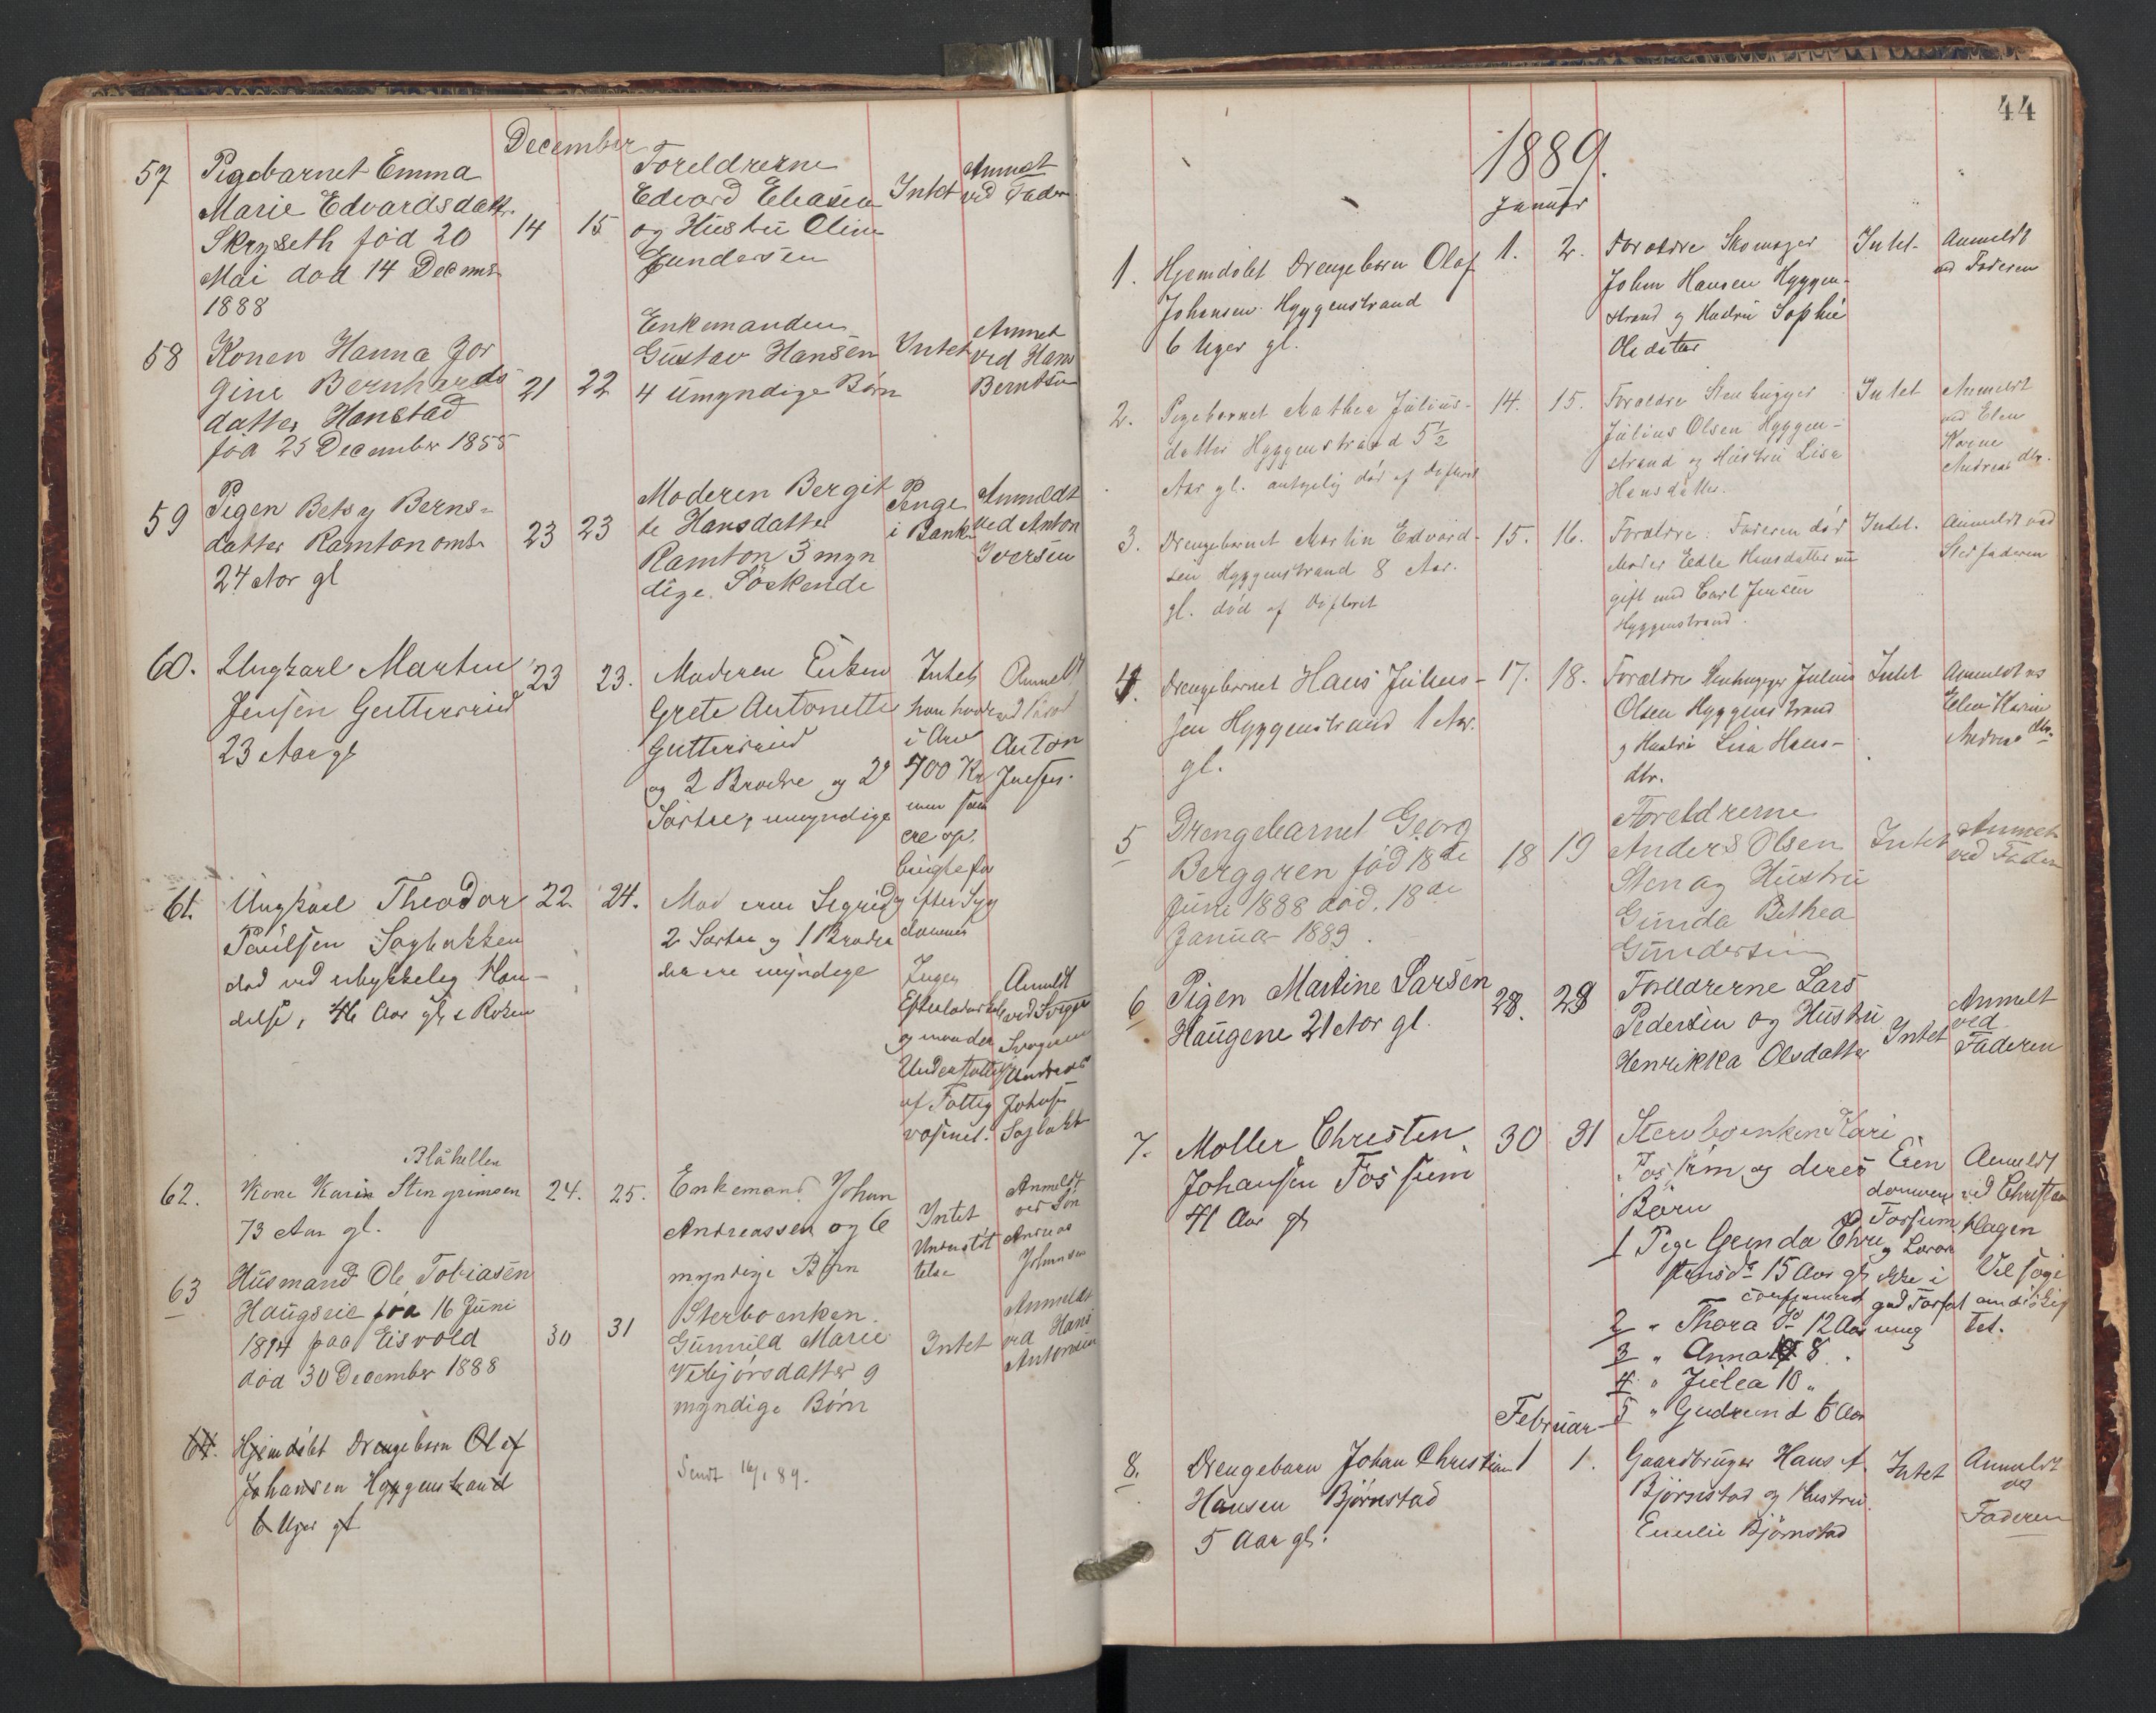 December
57 Pigebarnet Emma
Marie Edvardsdatt.
Skryseth föd 20
Mai död 14 Decemb
1888
14 15
Foreldrerne
Edvard Eliasen
og Hustru Oline
Gundersen
Intet
Anmelt
ved Fader
58 Konen Hanna Jor
gine Bernhards
datter Hanstad
föd 25 December 1855
21 22
Enkemanden
Gustav Hansen
4 Umyndige Börn
Intet
Anmet
ved Hans
Berntsen
59 Pigen Betsy Berns-
datter Ramton omtr
24 Aar gl
23 23
Moderen Bergit
te Hansdatter
Ramton 3 myn
dige Söskende
Penge
i Bank
Anmeldt
ved Anton
Iversen
60. Ungkarl Martin
Jensen Gutterud
23 Aar gl
23 23.
Moderen Enken
Grete Antonette
Gutterud
og 2 Brødre og 2
Söstre, umyndige
Intet
han havde
i Arv
700 Kr
men som
ere op.
brugte for
og efter Syg
dommen
Anmeldt
ved
Anton
Jensen.
61. Ungkarl Theodor
Paulsen Sagbakken
død ved ulykkelig Hæn-
delse, 46 Aar gl, i Røken
22 24.
Moderen Sigrid
2 Søstre og 1 Broder
der ere myndige
Ingen
Efterladenskab
og maatte
Understøttes
af Fattig
væsenet.
Anmeldt
ved Svoger
Svogeren
Andreas
Johnsen
Sagbakk
Blåhellen
62. Kone Karin Stengrimsen
73 Aar gl.
24. 25.
Enkemand Johan
Andreassen og 6
myndige Börn
Intet
Understöt
telse
Anmeldt
ved Sön
Andreas
Johansen
63 Husmand Ole Tobiasen
Haugseie föd 16 Juni
1814 paa Eisvold
död 30 December 1888
30 31
Sterboenken
Gunnild Marie
Vebjörsdatter 9
myndige Börn
Intet
Anmeldt
ved Hans
Antonsen
64. Hjemdöbt Drengebarn Olaf
Johansen Hyggenstrand
6 Uger gl
Sendt 16/1 89.
44
1889.
Januar
1. Hjemdöbt Drengebarn Olaf
Johansen Hyggenstrand
6 Uger gl.
1. 2.
Forældre Skomager
Johan Hansen Hyggen-
strand og Hustru Sophie
Olsdatter
Intet
Anmeldt
ved Faderen
2. Pigebarnet Mathea Julius-
datter Hyggenstrand 5½
Aar gl. antagelig död af Difterit
14. 15.
Forældre Stenhugger
Julius Olsen Hyggen-
strand og Hustru Lisa
Hansdatter.
Intet
Anmeldt
ved Elen
Karine
Andreas dtr.
3. Drengebarnet Martin Edvard-
sen Hyggenstrand 8 Aar.
gl. död af Difterit
15. 16.
Foræltre: Faderen död
Moder Edle Hansdatter nu
gift med Carl Jensen
Hyggenstrand.
Intet.
Anmeldt ved
Stedfaderen
4. Drengebarnet Hans Julius-
sen Hyggenstrand 1 Aar.
gl.
17. 18.
Forældre Stenhugger Julius
Olsen Hyggenstrand
og Hustru Lisa Hans-
dtr.
Intet
Anmeldt ved
Elen Karine
Andreas dtr.
5 Drengebarnet Georg
Berggren föd 18de
Juni 1888 död. 18de
Januar 1889.
18 19
Foreldrerne
Anders Olsen
Sten og Hustru
Gunda Bethea
Gundersen
Intet
Anmet
ved Fader
6 Pigen Martine Larsen
Haugene 21 Aar gl.
28. 29
Foreldrerne Lars
Pedersen og Hustru
Henrikka Olsdatter
Intet
Anmelt
ved
Faderen
7. Møller Christen
Johansen Fossum
41 Aar gl
30 31
Stervboenken Kari
Fossum og deres
Børn
1 Pige Gunda Chri
stensdr 15 Aar gl
confirmert
2 " Thora Do 12 Aar
3 " Anna 8 "
4 " Julea 10 "
5 " Gudrund 6 Aar
Eien
dommen
Fossum
og Løsøre
ikke i
god Forfat
ning
Anmeldt
ved Christian
Hagen
Februar
8. Drengebarn Johan Christian
Hansen Björnstad
5 Aar gl.
1 1.
Gaardbruger Hans A.
Björnstad og Hustru
Emelie Björnstad
Intet
Anmeldt
ved
Faderen